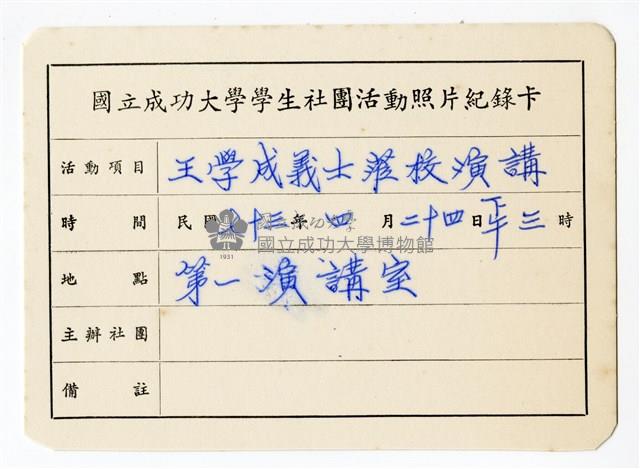 國立成功大學學生社團活動照片紀錄卡
活動項目 王學成義士蒞校演講
時間 民國七十三年四月二十四日下午三時
國立成功大學
國立成功大學博物館
1931
地點 第一演講室
主辦社團
備註